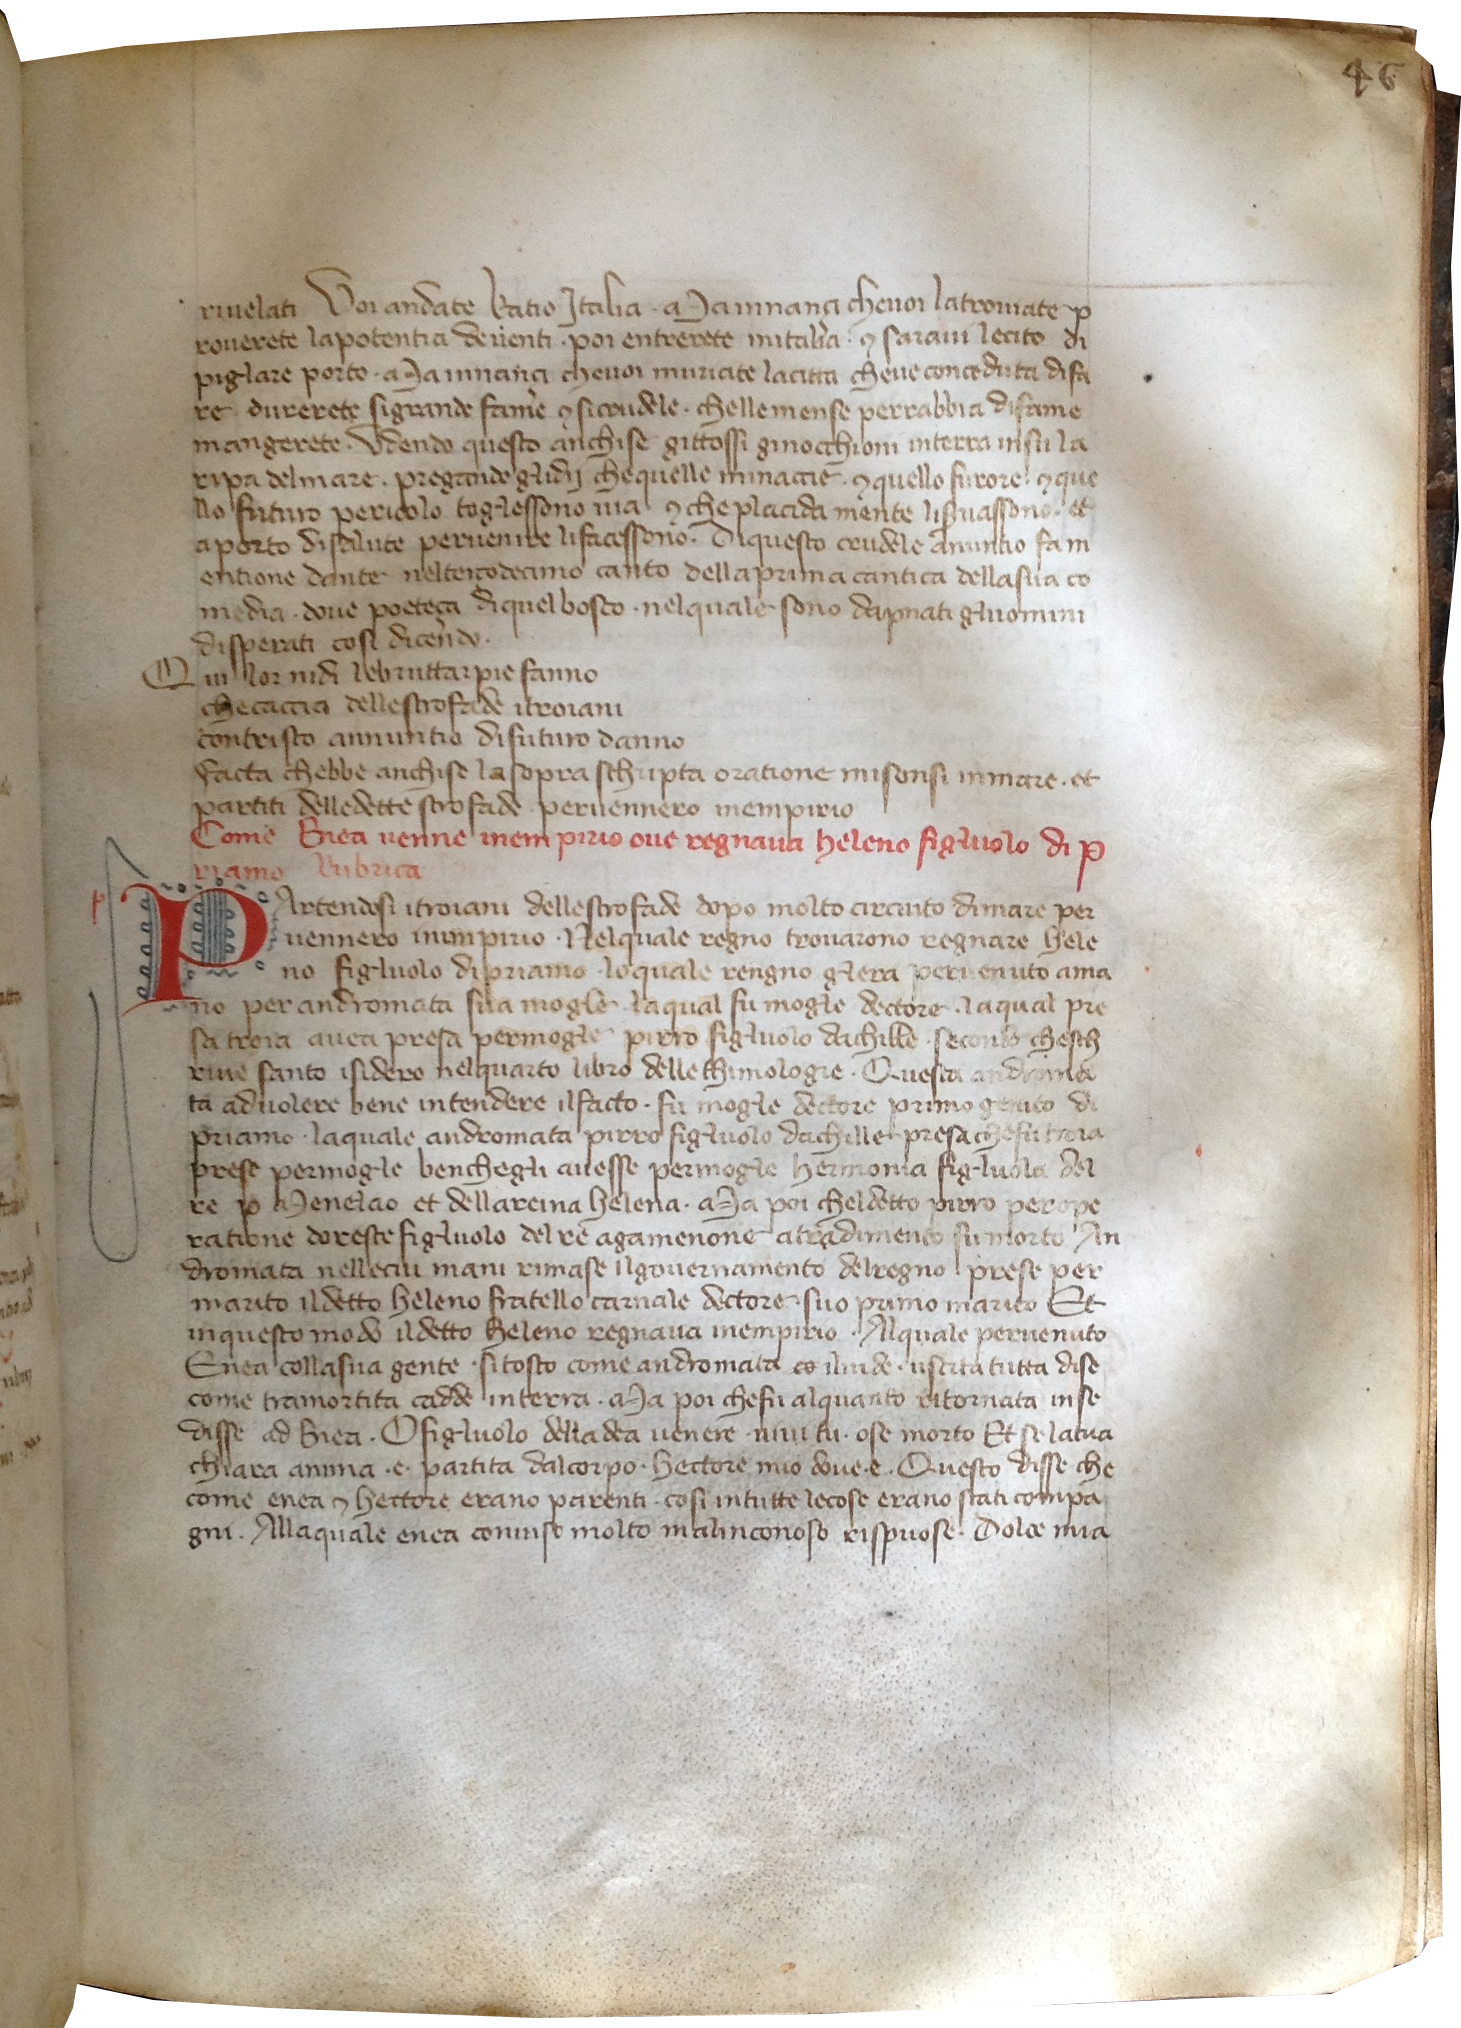 46
riuelati Voi andate Ratio Italia · Ma innançi cheuoi latrouiate p
rouerete lapotentia deuenti · poi entrerete initalia · ⁊ saraui lecito di
piglare porto · Ma innançi cheuoi muriate lacitta cheue conceduta difa
re · durerete sigrande fame ⁊ si crudele · chellemense perrabbia difame
mangerete · Vdendo questo anchise gittossi ginocchioni interra insula
ripa delmare · pregando glidij chequelle minaccie · ⁊ quello furore · ⁊ que
llo futuro pericolo toglessono uia ⁊ che placida mente liguassono · et
aporto disalute peruenire lifacessono · Diquesto crudele anuntio fa m
entione dante nelterçodecimo canto dellaprima cantica dellasua co
media · doue poeteça diquel bosco · nelquale sono dapnati gluomini
disperati cosi dicendo ·
Qui lor nidi lebruttarpie fanno
checaccia dellestrofade itroiani
contristo annuntio difuturo danno
Facta chebbe anchise la sopra schripta oratione misonsi inmare · et
partiti delledette strofade peruennero inempirio
Come Enea uenne inempirio oue regnaua heleno figluolo di p
riamo Rubrica
PArtendosi itroiani dellestrofade dopo molto circuito dimare per
uennero inimpirio · Nelquale regno trouarono regnare hele
no figluolo dipriamo · loquale rengno glera peruenuto ama
no per andromata sua mogle · laqual fu mogle dectore · laqual pre
sa troia auea presa permogle pirro figluolo dachille · secondo chesch
riue santo isidero nelquarto libro delle thimologie · Questa androma
ta aduolere bene intendere ilfacto · fu mogle dectore primo genito di
priamo · laquale andromata pirro figluolo dachille presa chefu troia
prese permogle benchegli auesse permogle hermonia figluola del
re p Menelao et dellareina helena · Ma poi cheldetto pirro perope
ratione doreste figluolo delre agamenone atradimento fu morto An
dromata nellecui mani rimase ilgouernamento delregno prese per
marito ildetto heleno fratello carnale dectore · suo primo marito Et
inquesto modo ildetto heleno regnaua inempirio · Alquale peruenuto
Enea collasua gente · sitosto come andromata co iluide · uscita tutta dise
come tramortita cadde interra · Ma poi chefu alquanto ritornata inse
disse ad Enea · O figluolo delladea uenere · uiui tu · ose morto Et se latua
chiara anima · e · partita dalcorpo · hectore mio doue · e · Questo disse che
come enea ⁊ hectore erano parenti · cosi intutte lecose erano stati compa
gni · Allaquale enea conuiso molto malinconoso rispuose · Dolce mia